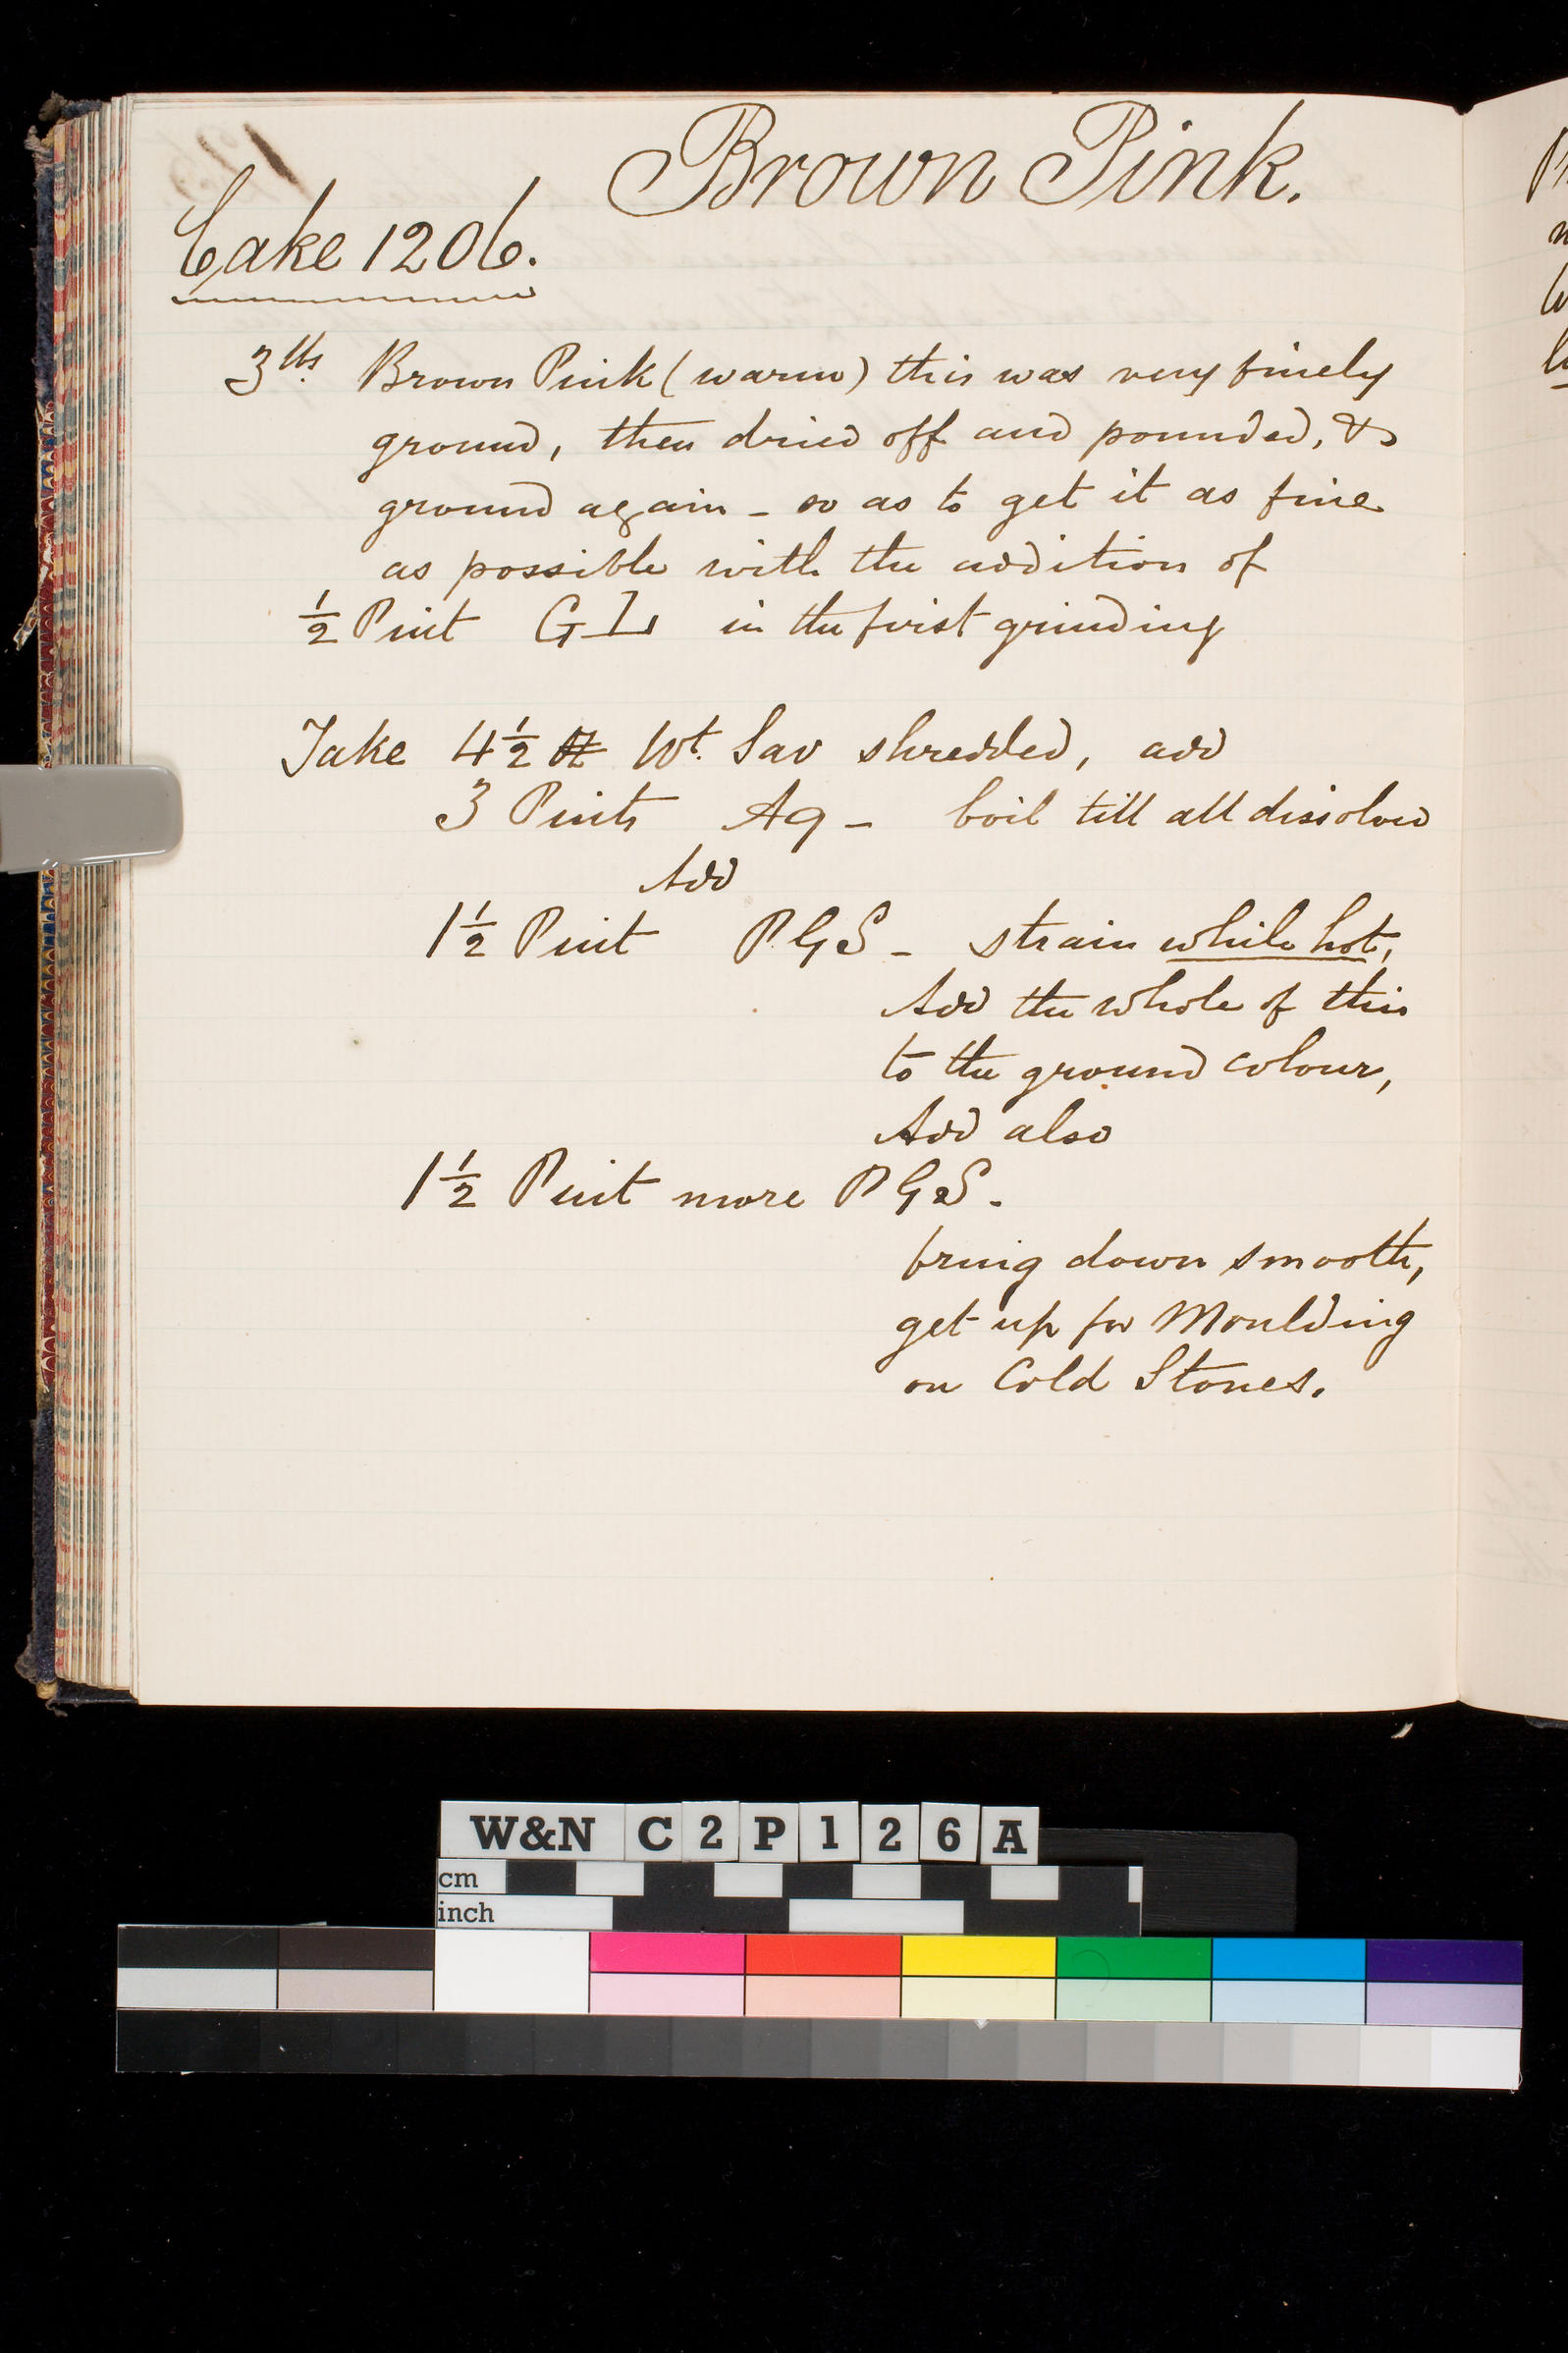 Brown Pink.
Cake 1206.
3 lbs. Brown Pink (warm) this was very finely
ground, then dried off and pounded, &
ground again - so as to get it as fine
as possible with the addition of
1/2 Pint GL in the first grinding
Take 4 1/2 Wt. Sav shredded, add
3 Pints Aq - boil till all dissolved
Add
1 1/2 Pint PGS - strain while hot,
Add the whole of this
to the ground colour,
Add also
1 1/2 Pint more PGS.
bring down smooth,
get up for Moulding
on Cold Stones.
W&N C2P126A
cm
inch